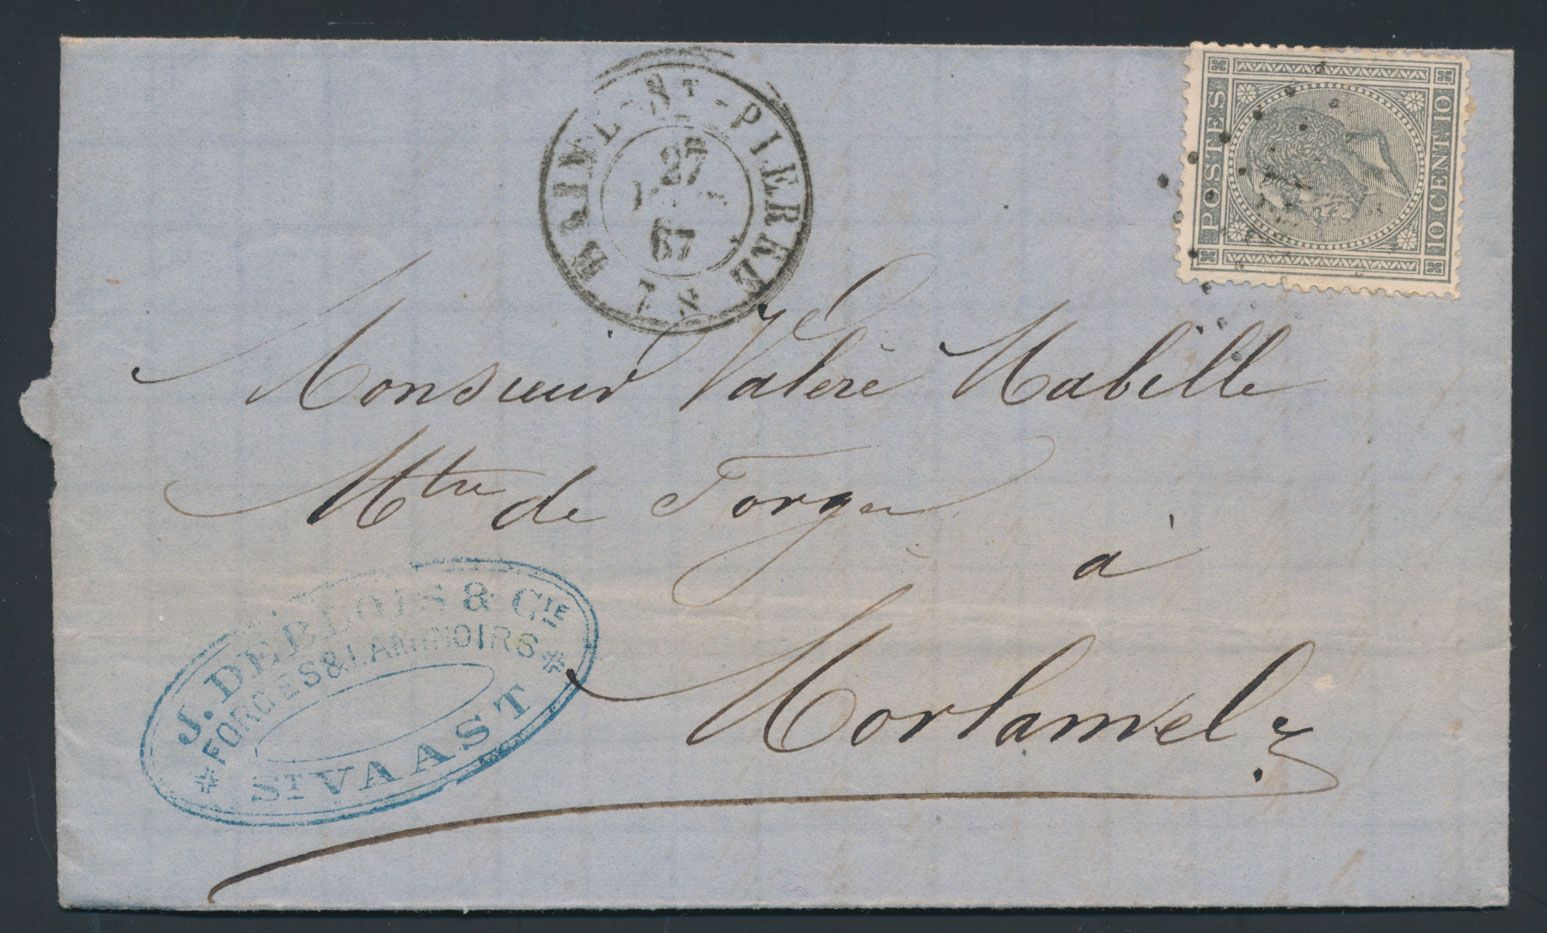 ST-PIERRE
27
67
POSTES
10 CENT 10
Monsieur Valère Mabille
Mtre de Forges
à
Morlanwelz
J. DEBLOIS & CIE
FORGES & LAMINOIRS
ST VAAST